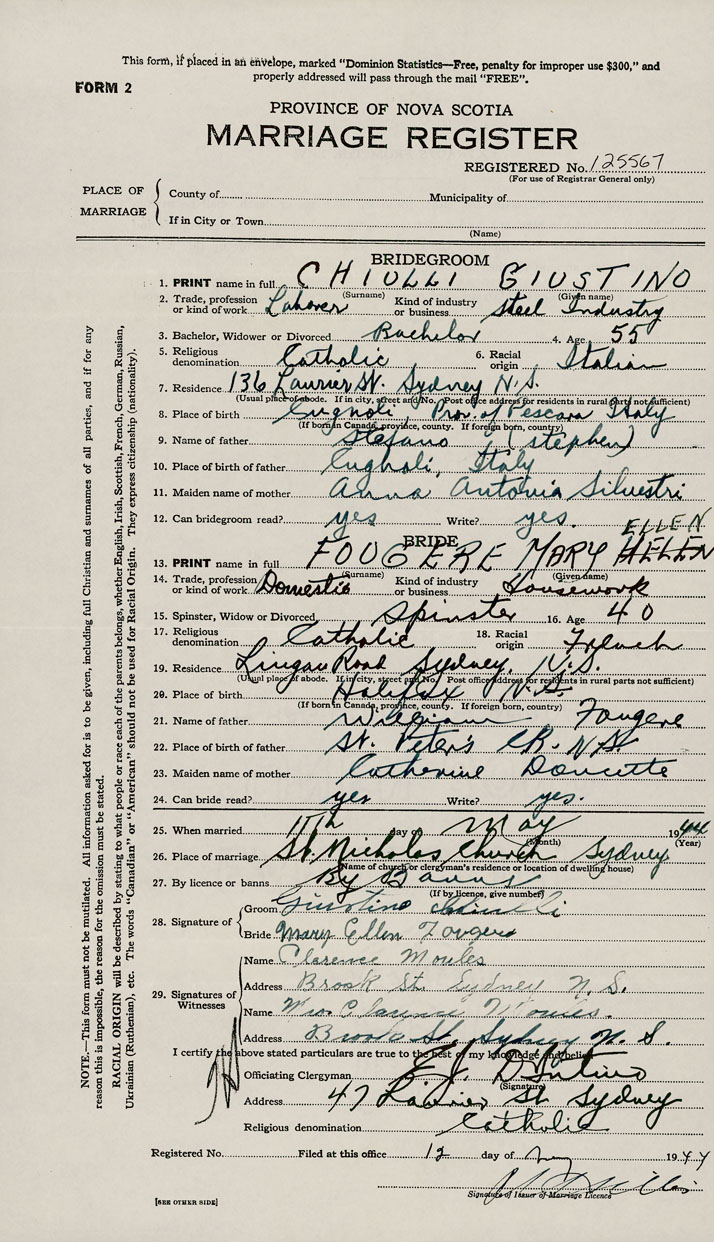 This form, if placed in an envelope, marked "Dominion Statistics—Free, penalty for improper use $300," and
properly addressed will pass through the mail "FREE".
FORM 2
PROVINCE OF NOVA SCOTIA
MARRIAGE REGISTER
REGISTERED No. 125567
(For use of Registrar General only)
PLACE OF MARRIAGE
County of Municipality of
If in City or Town
(Name)
BRIDEGROOM
1. PRINT name in full CHIULLI GIUSTINO
(Surname) (Given name)
2. Trade, profession or kind of work Laborer Kind of industry or business Steel Industry
3. Bachelor, Widower or Divorced Bachelor 4. Age 55
5. Religious denomination Catholic 6. Racial origin Italian
7. Residence 136 Laurier St. Sydney N.S.
(Usual place of abode. If in city, street and No. Post office address for residents in rural parts not sufficient)
8. Place of birth Cugnoli, Prov. of Pescara Italy
(If born in Canada, province, county. If foreign born, country)
9. Name of father Stefano (Stephen)
10. Place of birth of father Cugnoli, Italy
11. Maiden name of mother Anna Antonia Silvestri
12. Can bridegroom read? yes Write? yes.
ELLEN
BRIDE
13. PRINT name in full FOUGERE MARY HELEN
(Surname) (Given name)
14. Trade, profession or kind of work Domestic Kind of industry or business Housework
15. Spinster, Widow or Divorced Spinster 16. Age 40
17. Religious denomination Catholic 18. Racial origin French
19. Residence Lingan Road Sydney, N.S.
(Usual place of abode. If in city, street and No. Post office address for residents in rural parts not sufficient)
20. Place of birth Halifax N.S.
(If born in Canada, province, county. If foreign born, country)
21. Name of father William Fougere
22. Place of birth of father St. Peter's CB. N.S
23. Maiden name of mother Catherine Doucette
24. Can bride read? yes Write? yes.
25. When married 11th day of May 1944
(Month) (Year)
26. Place of marriage St. Nicholas Church Sydney
(Name of church or clergyman's residence or location of dwelling house)
27. By licence or banns By Banns
(If by licence, give number)
28. Signature of
Groom Giustino Chiulli
Bride Mary Ellen Fougere
29. Signatures of Witnesses
Name Clarence Moules
Address Brook St. Sydney N. S.
Name Mrs. Clarence Moules.
Address Brook St. Sydney N. S.
I certify the above stated particulars are true to the best of my knowledge and belief.
Officiating Clergyman
(Signature)
Address 47 Laurier St Sydney
Religious denomination Catholic
Registered No. Filed at this office 12 day of May 1944
Signature of Issuer of Marriage Licence
[SEE OTHER SIDE]
NOTE.—This form must not be mutilated. All information asked for is to be given, including full Christian and surnames of all parties, and if for any
reason this is impossible, the reason for the omission must be stated.
RACIAL ORIGIN will be described by stating to what people or race each of the parents belongs, whether English, Irish, Scottish, French, German, Russian,
Ukrainian (Ruthenian), etc. The words "Canadian" or "American" should not be used for Racial Origin. They express citizenship (nationality).